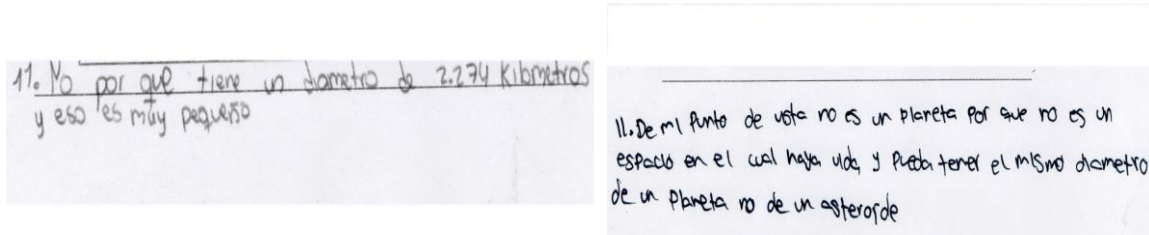 11. No por que tiene un diametro de 2.274 Kilometros
y eso es muy pequeño
11. De mi Punto de vista no es un planeta Por que no es un
espacio en el cual haya vida, y Pueda tener el mismo diametro
de un Planeta no de un asteroide